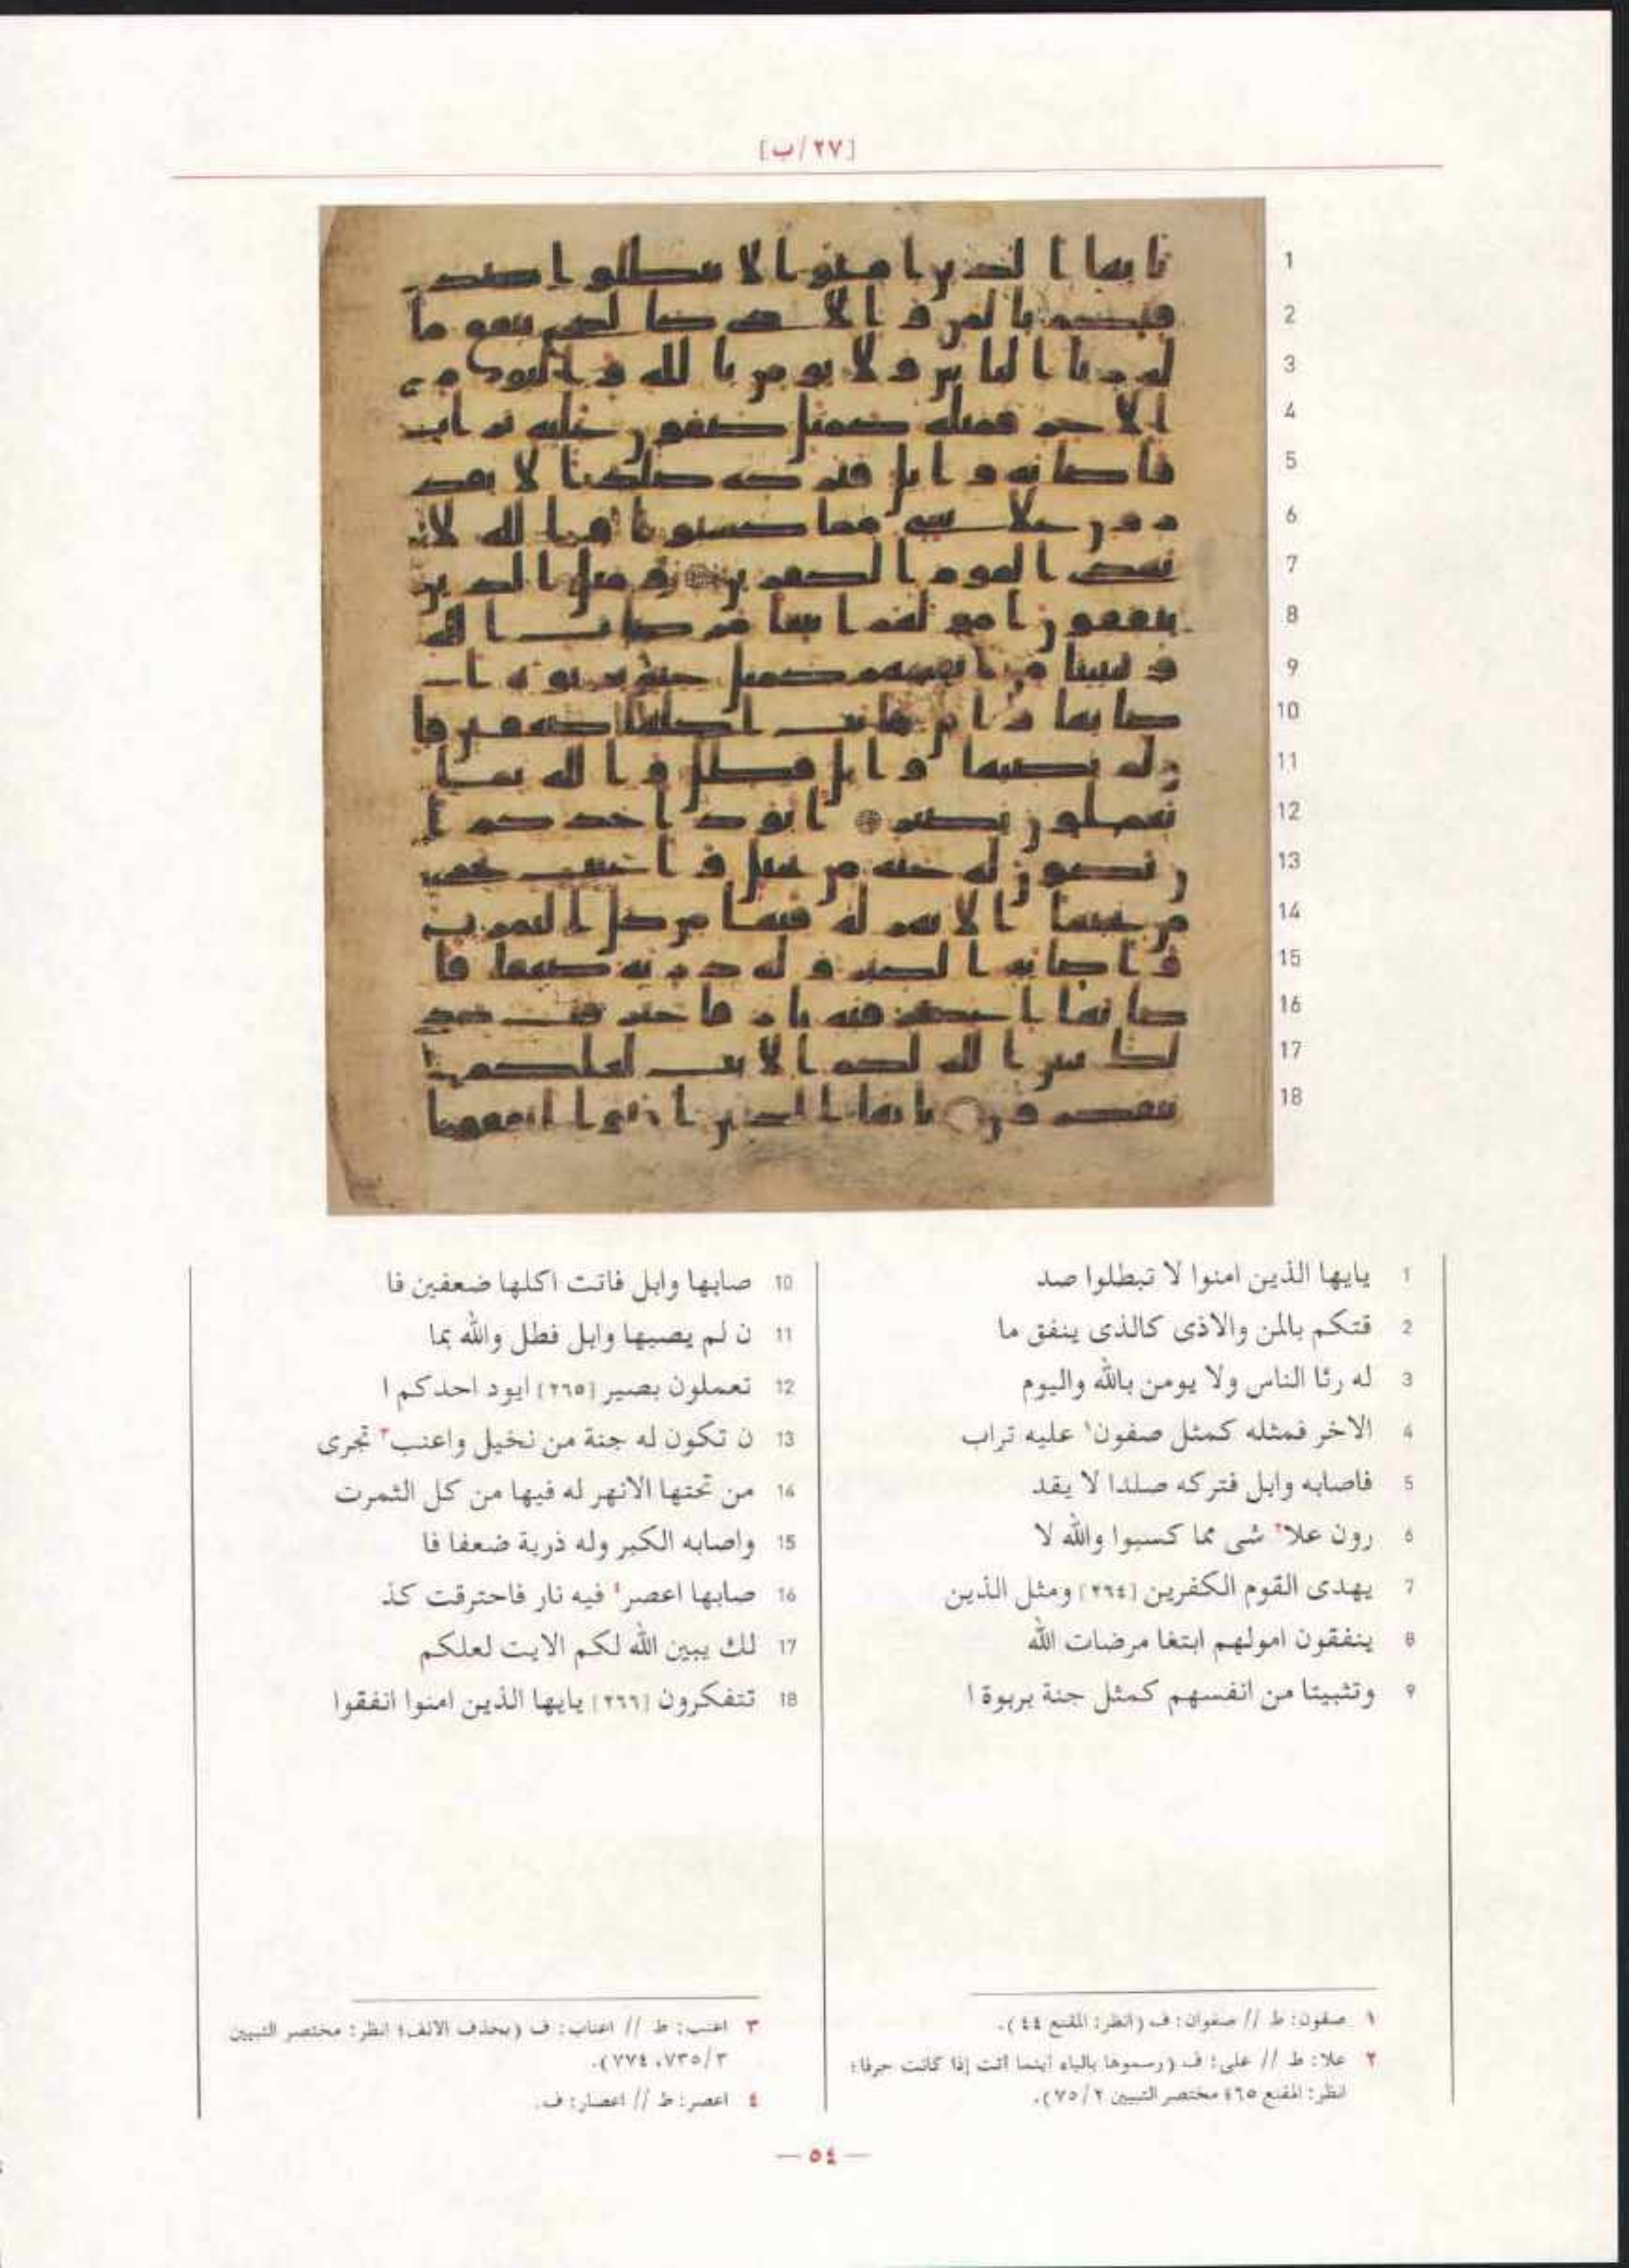 [٢٧/ب]
1
2
3
4
5
6
7
8
9
10
11
12
13
14
15
16
17
18
1 يايها الذين امنوا لا تبطلوا صد
2 قتكم بالمن والاذى كالذى ينفق ما
3 له رئا الناس ولا يومن بالله واليوم
4 الاخر فمثله كمثل صفون١ عليه تراب
5 فاصابه وابل فتركه صلدا لا يقد
6 رون علا٢ شى مما كسبوا والله لا
7 يهدى القوم الكفرين [٢٦٤] ومثل الذين
8 ينفقون امولهم ابتغا مرضات الله
9 وتثبيتا من انفسهم كمثل جنة بربوة ا
10 صابها وابل فاتت اكلها ضعفين فا
11 ن لم يصبها وابل فطل والله بما
12 تعملون بصير [٢٦٥] ايود احدكم ا
13 ن تكون له جنة من نخيل واعنب٣ تجرى
14 من تحتها الانهر له فيها من كل الثمرت
15 واصابه الكبر وله ذرية ضعفا فا
16 صابها اعصر٤ فيه نار فاحترقت كذ
17 لك يبين الله لكم الايت لعلكم
18 تتفكرون [٢٦٦] يايها الذين امنوا انفقوا
١ صفون: ط // صفوان: ف (انظر: المقنع ٤٤).
٢ علا: ط // على: ف (رسموها بالياء أينما أتت إذا كانت حرفا؛
انظر: المقنع ٦٥؛ مختصر التبيين ٧٥/٢).
٣ اعنب: ط // اعناب: ف (بحذف الألف؛ انظر: مختصر التبيين
٧٣٥/٣، ٧٧٤).
٤ اعصر: ط // اعصار: ف.
— ٥٤ —